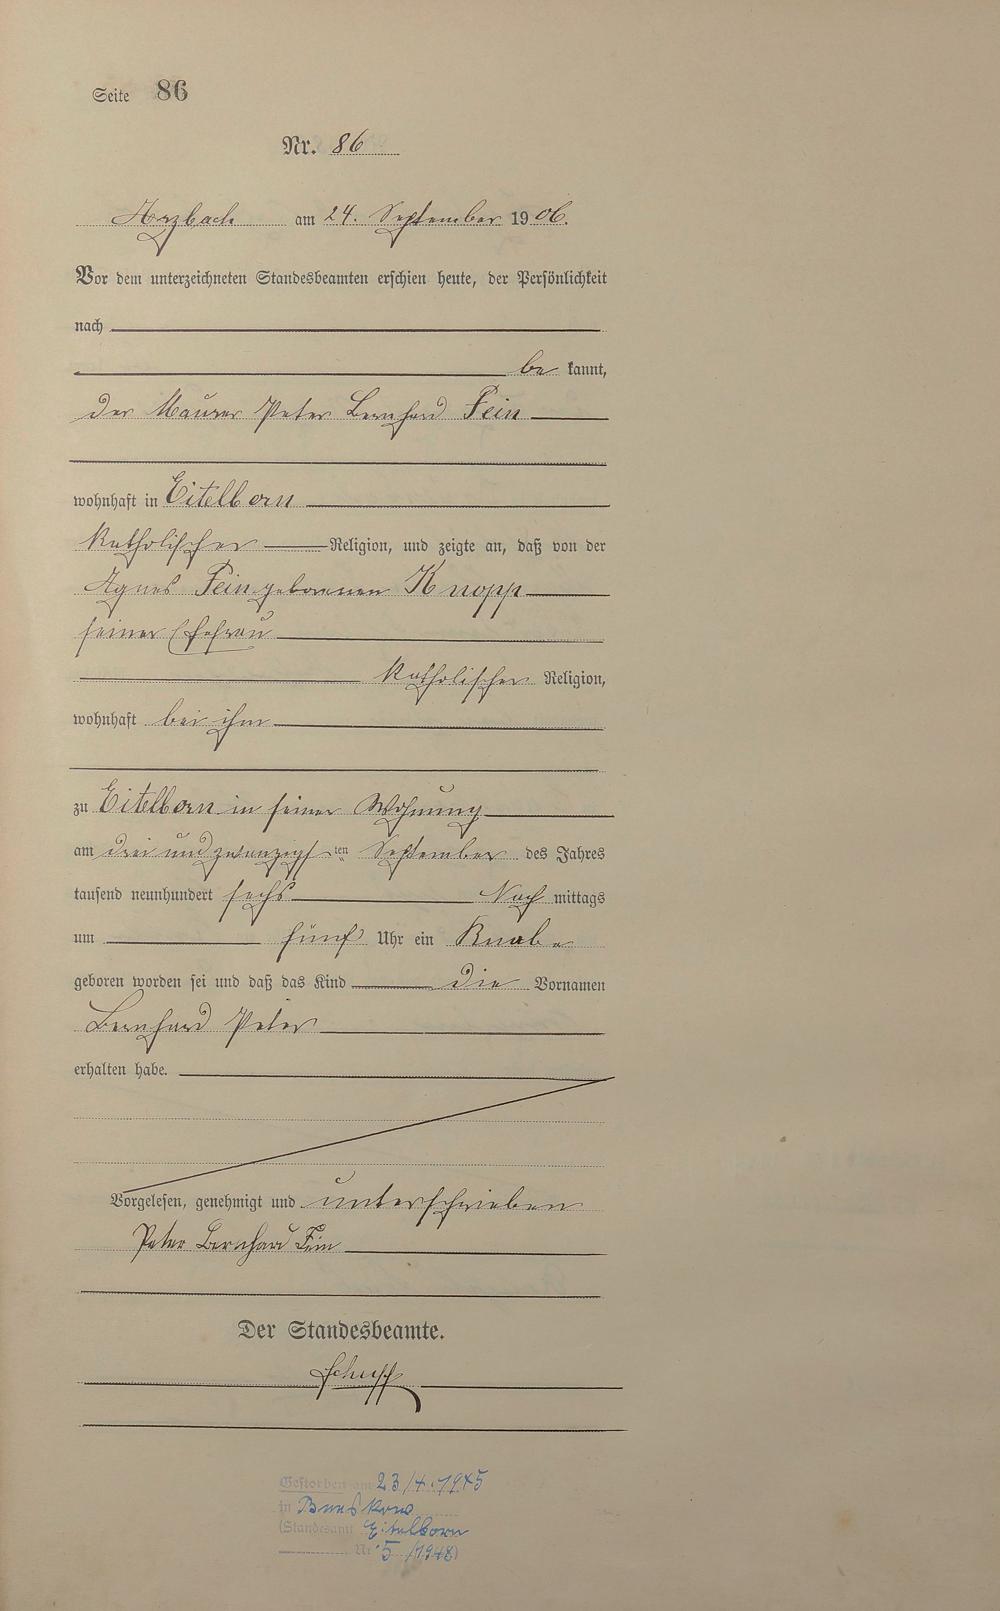 Seite 86
Nr. 86
Arzbach am 24. September 1906.
Vor dem unterzeichneten Standesbeamten erschien heute, der Persönlichkeit
nach
be kannt,
der Maurer Peter Bernhard Fein
wohnhaft in Eitelborn
katholischer Religion, und zeigte an, daß von der
Agnes Fein geborenen Knopp
seiner Ehefrau
katholischer Religion,
wohnhaft bei ihm
zu Eitelborn in seiner Wohnung
am drei und zwanzigsten September des Jahres
tausend neunhundert sechs Nach mittags
um fünf Uhr ein Knabe
geboren worden sei und daß das Kind die Vornamen
Bernhard Peter
erhalten habe.
Vorgelesen, genehmigt und unterschrieben
Peter Bernhard Fein
Der Standesbeamte.
Gestorben am 23/4.1945
in
(Standesamt Eitelborn
Nr. 5/1948)